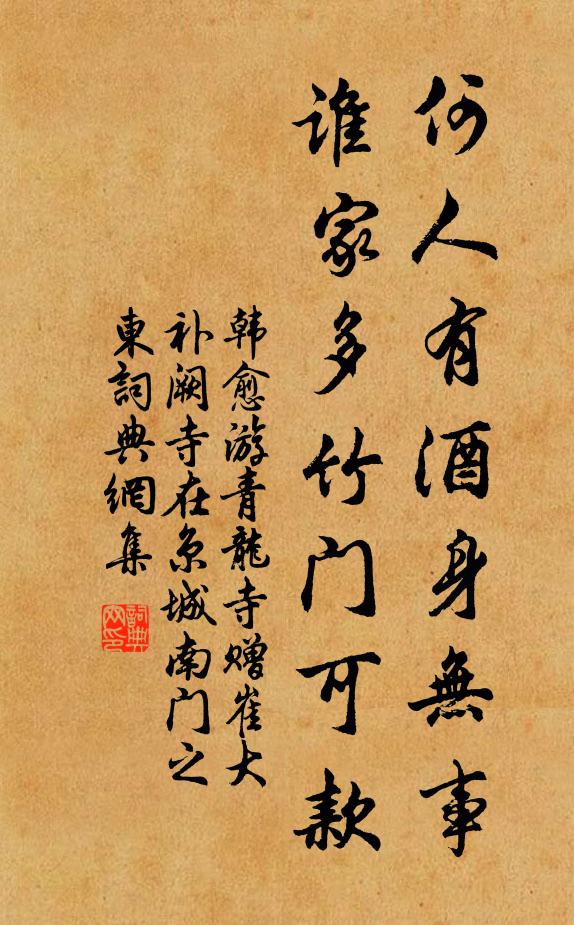 何人有酒身無事
谁家多竹门可款
韩愈游青龍寺赠崔大
补阙寺在京城南门之
東詞典網集
詞典网印